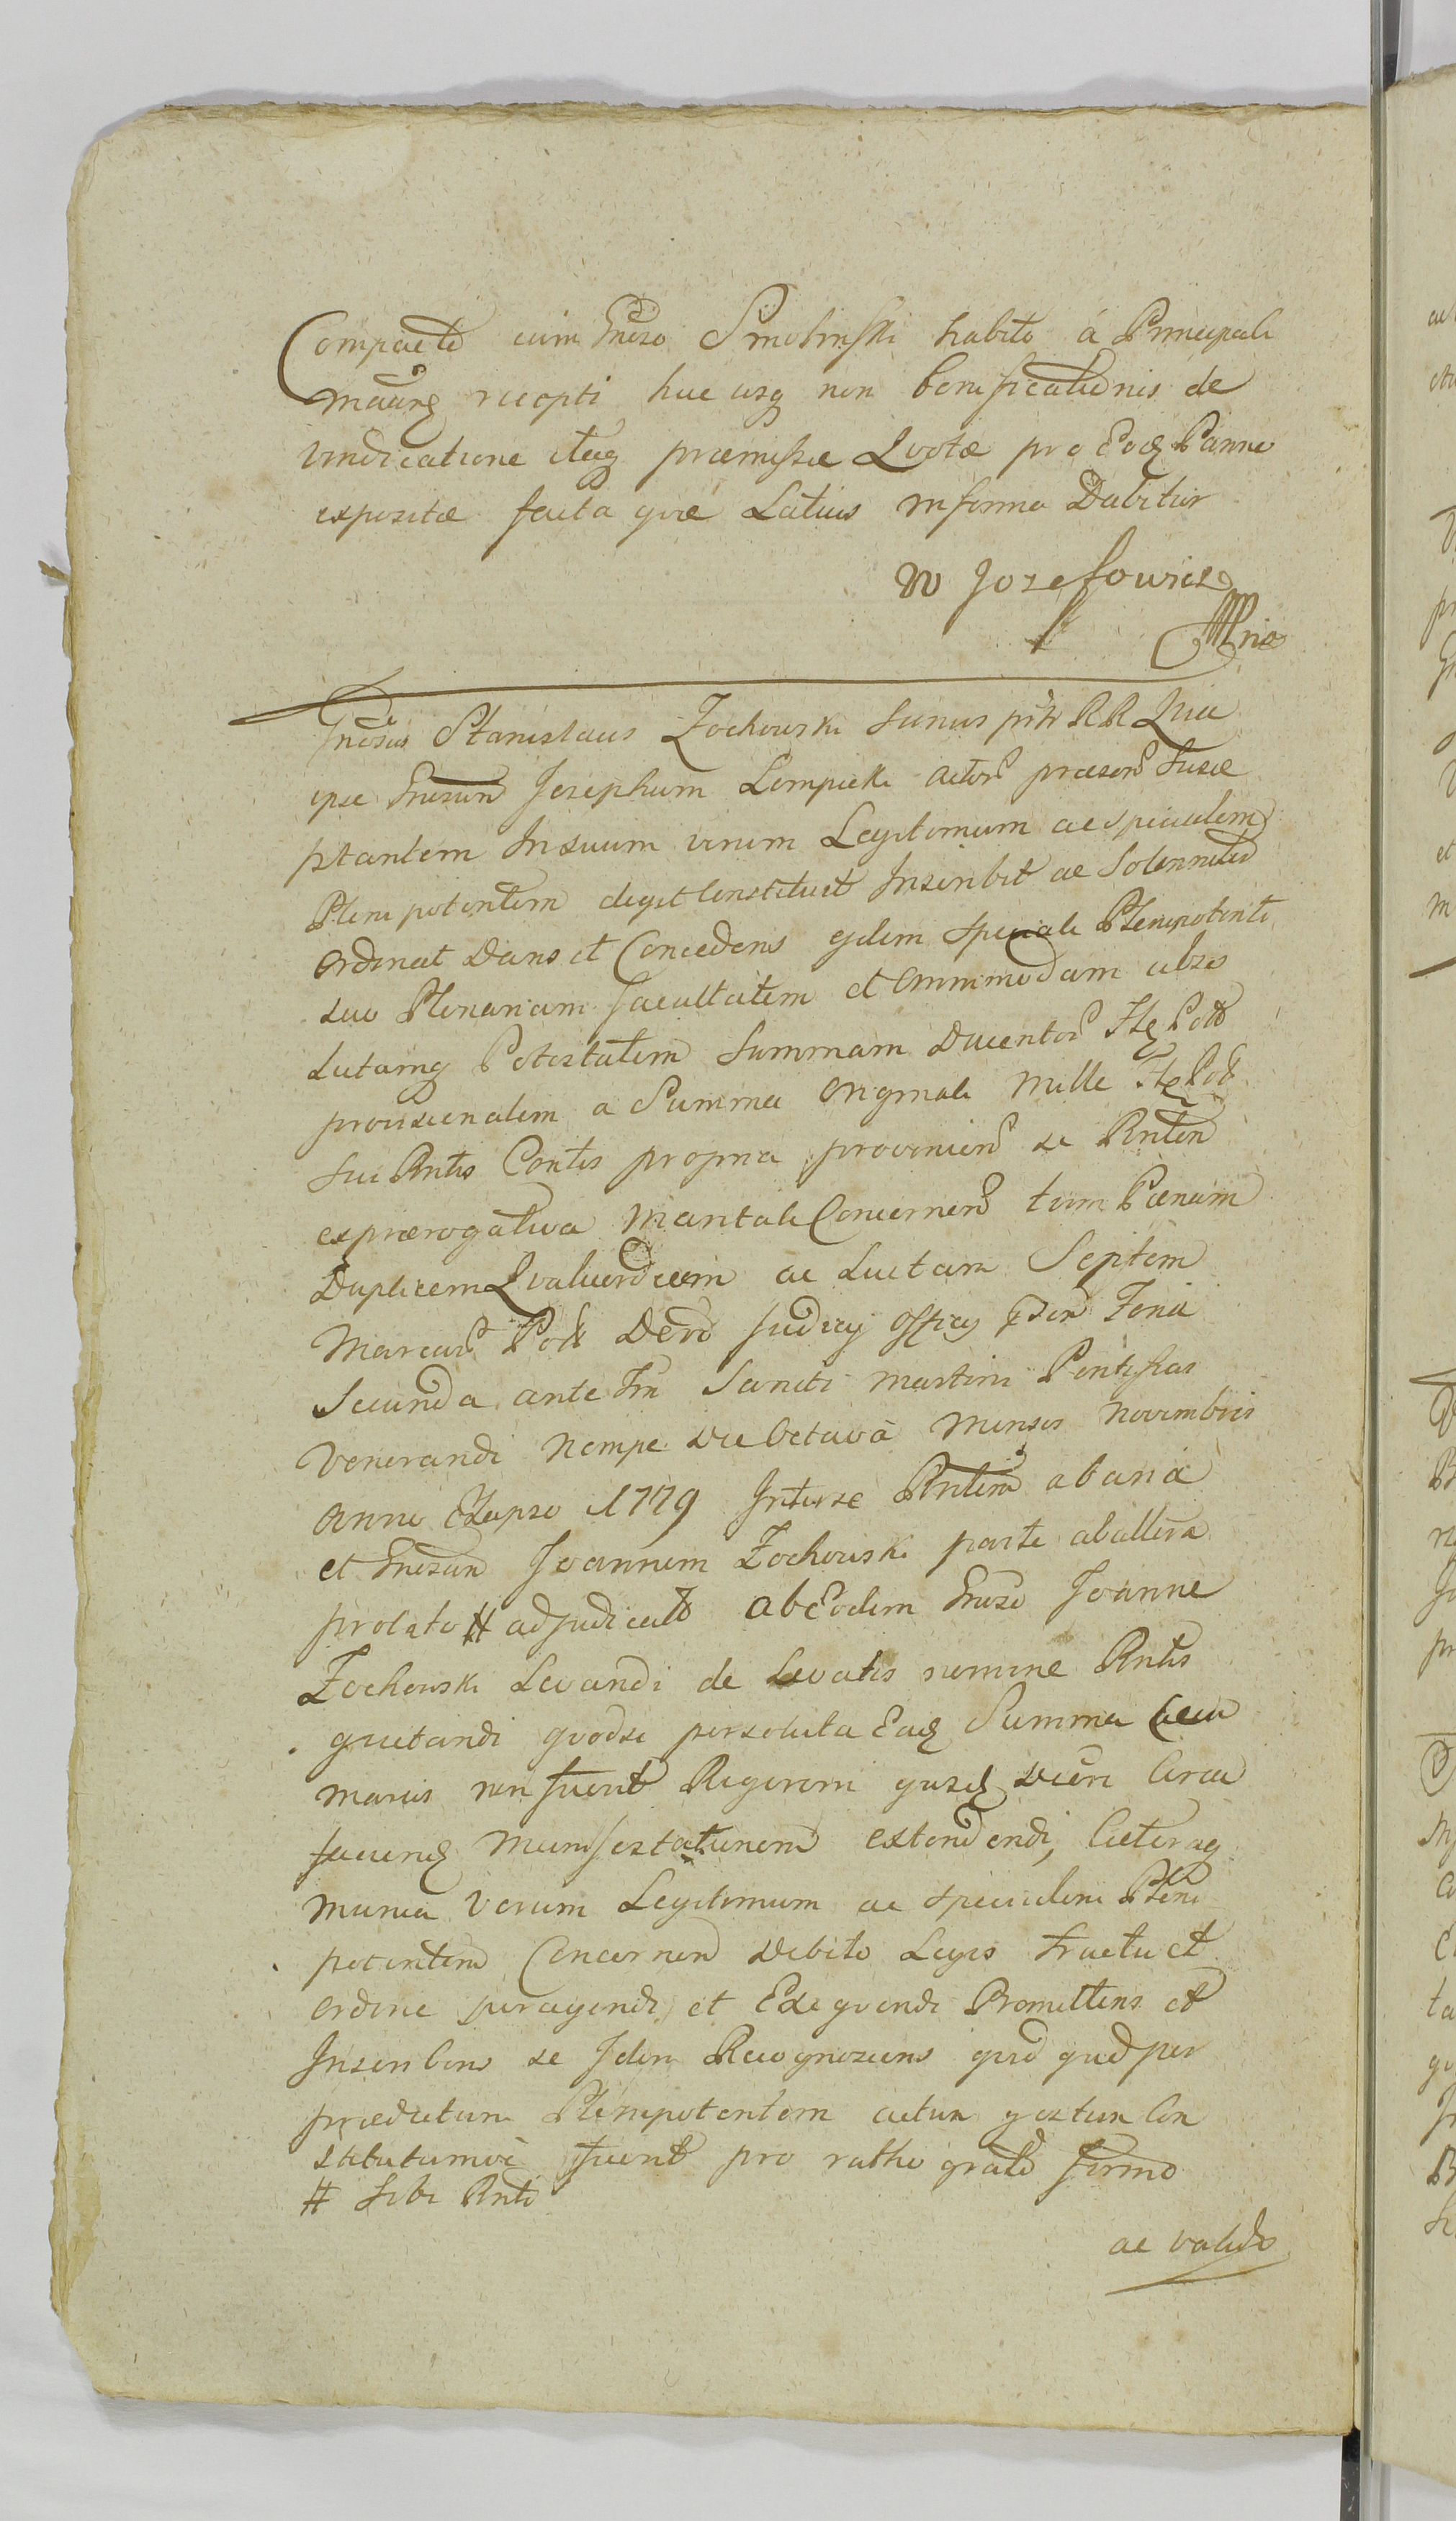 Compacto cum Gnroso Smolinski habito á Principali
recepti huc usq non bonificationis de
vindicatione itaq præmissæ Qvotæ pro Eodq Panno
expositæ facta qvæ Latius in forma Dabitur
W Jozefowicz
Mria
Gnosus Stanislaus Zochowski Sanus pttr RR Quia
ipse Gnrosum Josephum Lempicki actor præsen Susce
ptantem In suum verum Legitimum ac specialem
Plenipotentem elegit Constituit Inscribit ac Solenniter
Ordinat Dans et Concedens ejdem speciali Plenipotenti
suo Plenariam facultatem et Omnimodam abso
lutamq Potestatem Summam Ducentor Flq Poll
provisionalem a Summa Originali Mille Flq Poll
sui Rntis Contis propria provenien se Rnten
ex prærogativa Maritali Concernen tum Pænam
Duplicem Qvatuordecem ac Luctam Septem
Marcar Poll Decto Judicij Officij Feria
Secunda ante Ftm Sancti Martini Pontificis
Venerandi Nempe die Octava Mensis Novembris
Anni Elapso 1779 Inter se Rntem ab una
et Gnrosum Joannem Zochowski parte ab altera
prolato # adjudicat ab Eodem Gnroso Joanne
Zochowski Levandi de Levatis nomine Rntis
qvietandi qvodsi persoluta Eadq Summa
non fuerit Rigorem circa
faciend Manifestationem extendendi, Cæteraq
munia Verum Legitimum ac specialem Pleni
potentem Concernen debito Legis tractu et
Ordine peragendi et Exeqvendi Promittens et
Inscribens se Idem Recognoscens qvod qvidqvid per
prædictum Plenipotentem actum gestum Con
stitutumve fuerit pro ratho grato firmo
# sibi Rnti
ac valido